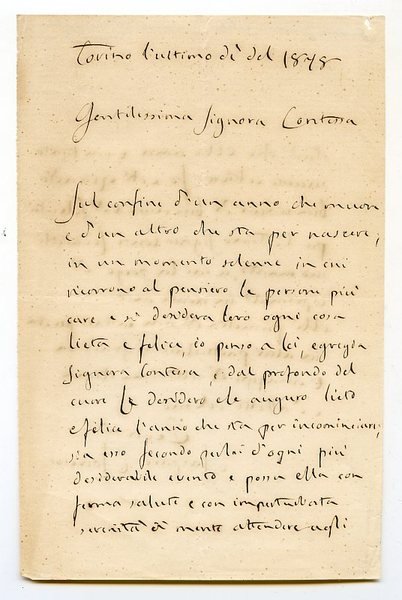 Torino l'ultimo dì del 1878
Gentilissima Signora Contessa
Sul confine d'un anno che muore
e d'un altro che sta per nascere,
in un momento solenne in cui
ricorrono al pensiero le persone più
care e si desidera loro ogni cosa
lieta e felice, io penso a lei, egregia
Signora Contessa, e dal profondo del
cuore Le desidero e le auguro lieto
e felice l'anno che sta per incominciare;
sia esso fecondo per lei d'ogni più
desiderabile evento e possa ella con
ferma salute e con imperturbata
serenità di mente attendere agli